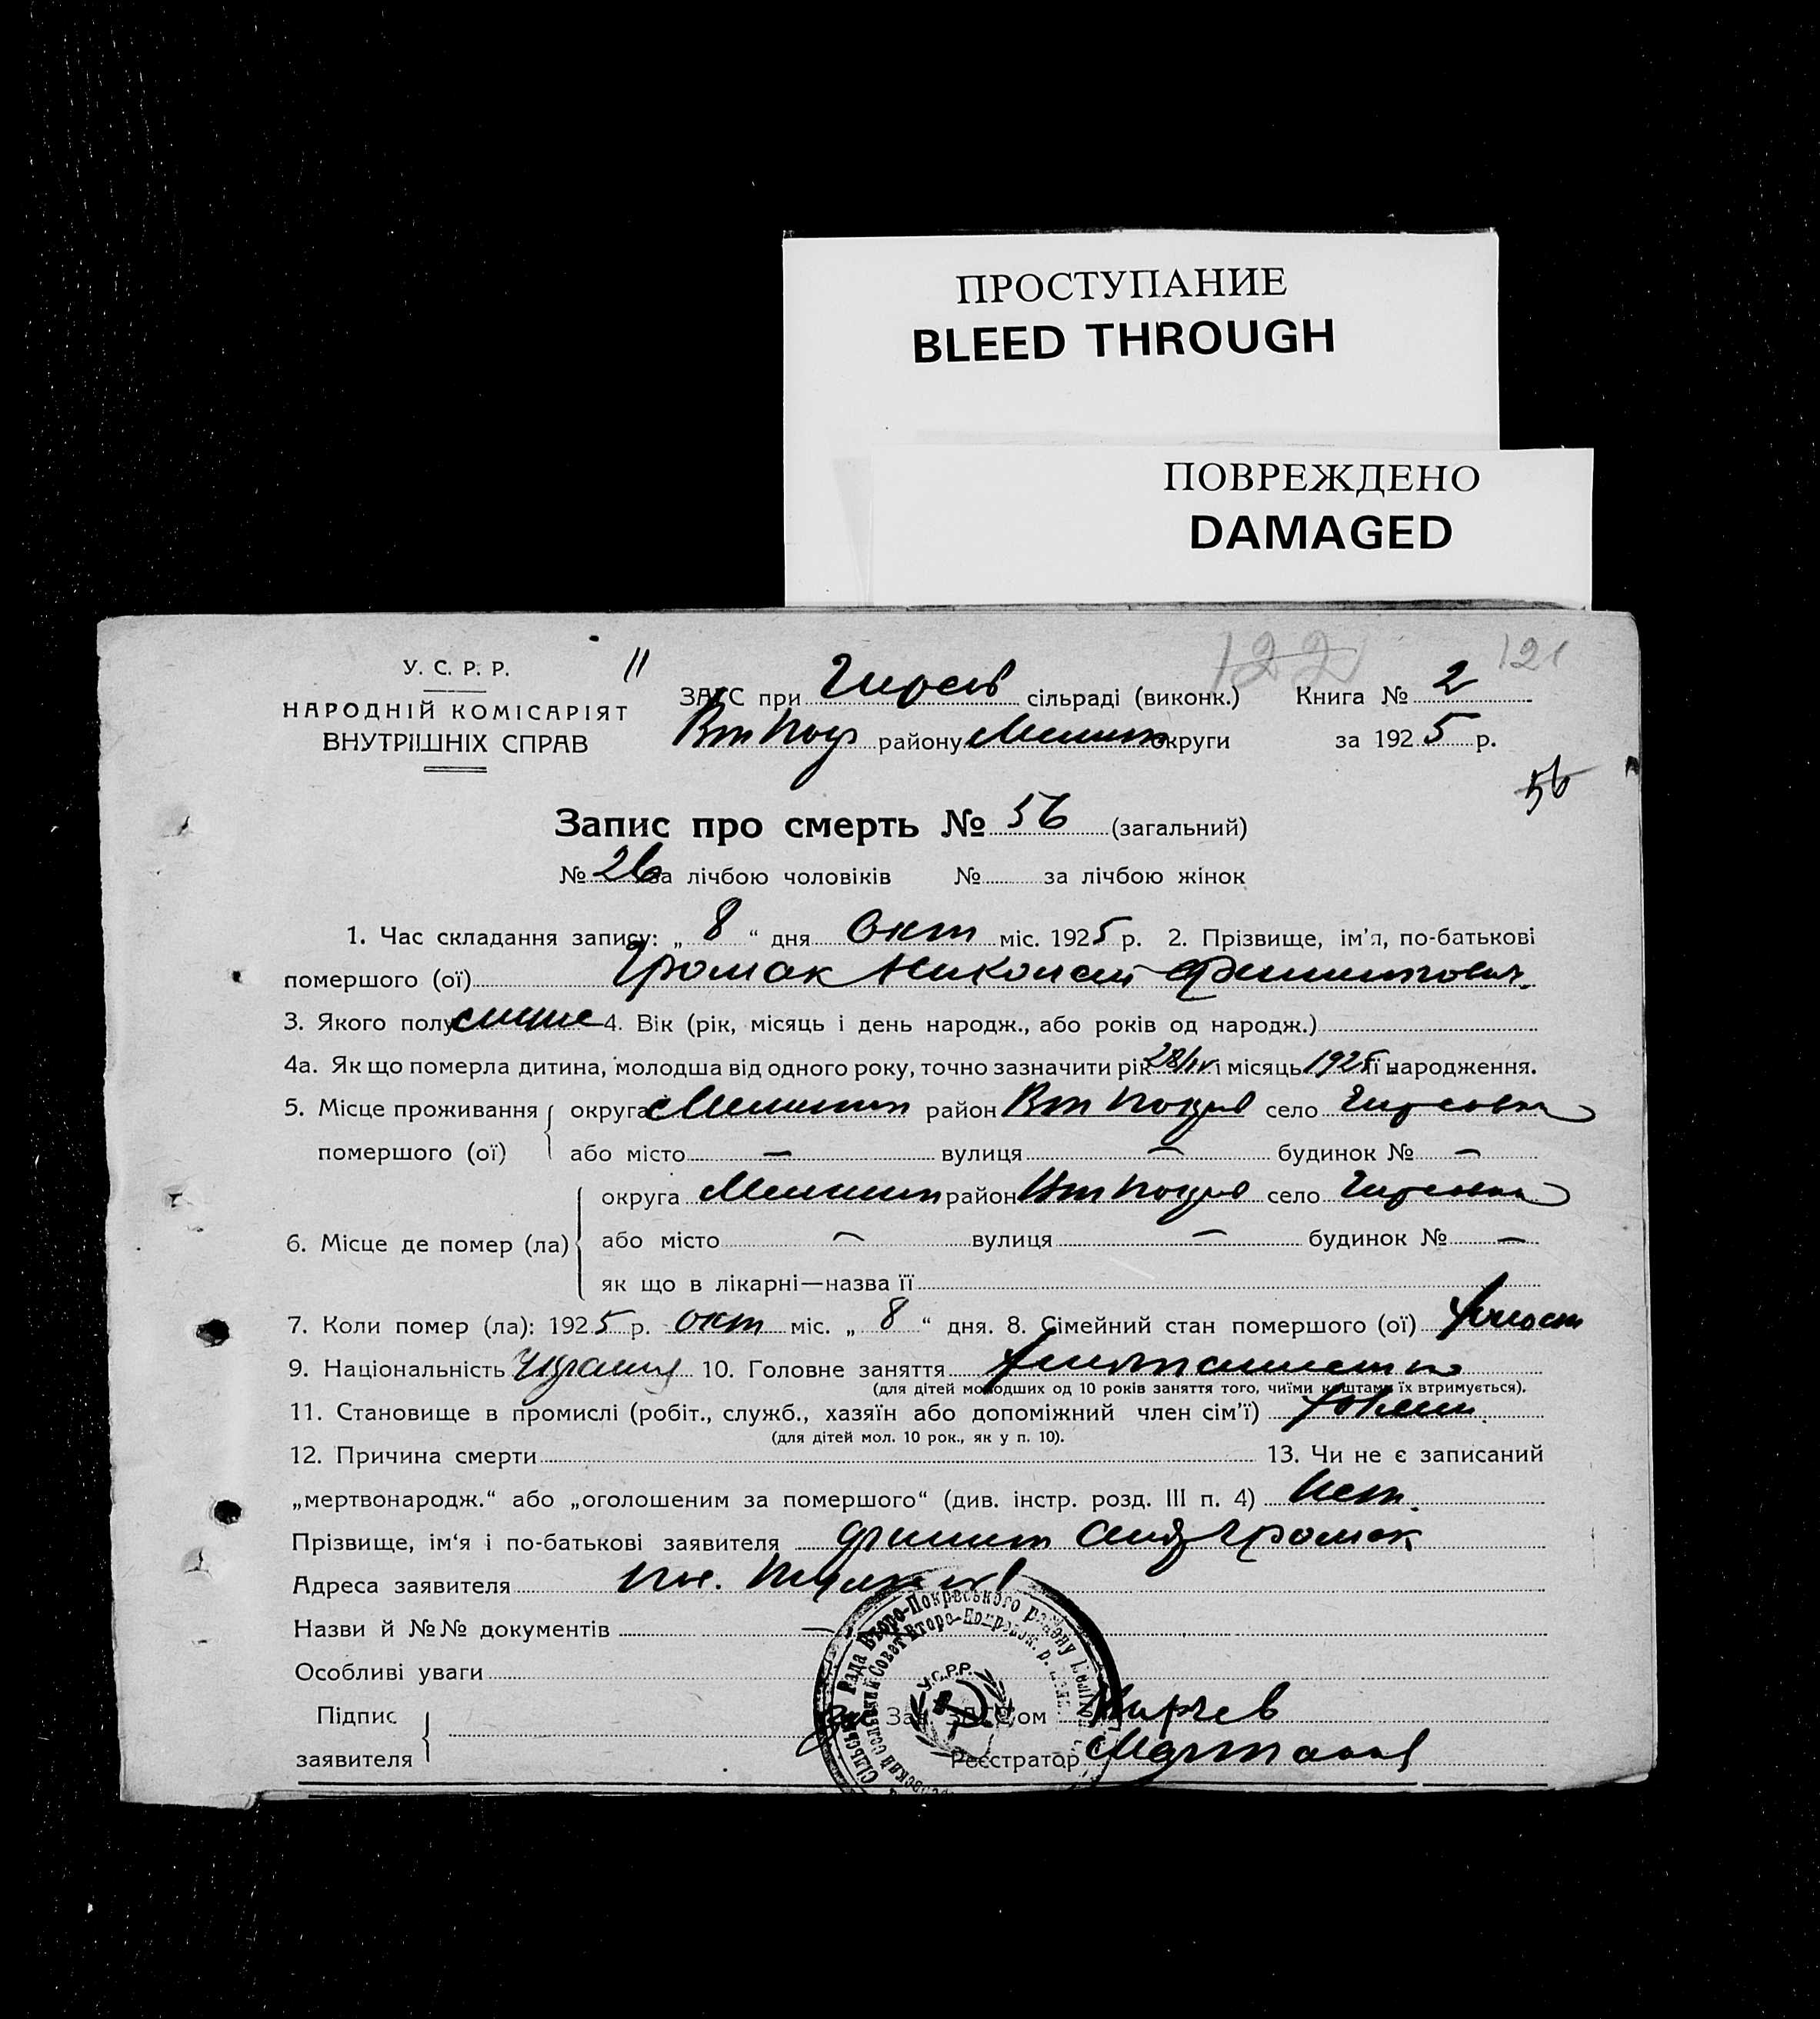 ПРОСТУПАНИЕ
BLEED THROUGH
ПОВРЕЖДЕНО
DAMAGED
У. С. Р. Р.
НАРОДНІЙ КОМІСАРІЯТ
ВНУТРІШНІХ СПРАВ
11
122 121
ЗАГС при Гирсів сільраді (виконк.) Книга № 2
Вт Покр району Мелит округи за 1925 р.
56
Запис про смерть № 56 (загальний)
№ 26 за лічбою чоловіків № за лічбою жінок
1. Час складання запису: „ 8 “ дня Окт міс. 1925 р. 2. Прізвище, ім’я, по-батькові
помершого (ої) Громак Николай Филиппович.
3. Якого полу 4. Вік (рік, місяць і день народж., або років од народж.)
4а. Як що померла дитина, молодша від одного року, точно зазначити рік 28/IV і місяць 1925 її народження.
5. Місце проживання округа Мелитоп район Вт Покров село Гирсовка
помершого (ої) або місто — вулиця — будинок № —
округа Мелитоп район Вт Покров село Гирсовка
6. Місце де помер (ла) або місто — вулиця — будинок № —
як що в лікарні—назва її
7. Коли помер (ла): 1925 р. окт міс. „ 8 “ дня. 8. Сімейний стан помершого (ої) холост
9. Національність Украин 10. Головне заняття
(для дітей молодших од 10 років заняття того, чиїми коштами їх втримується).
11. Становище в промислі (робіт., служб., хазяїн або допоміжний член сім’ї) хозяин
(для дітей мол. 10 рок., як у п. 10).
12. Причина смерти 13. Чи не є записаний
„мертвонародж.“ або „оголошеним за помершого“ (див. інстр. розд. III п. 4) Нет.
Прізвище, ім‘я і по-батькові заявителя Филипп Анд Громак
Адреса заявителя
Назви й №№ документів —
Особливі уваги
Підпис
заявителя
Зав. ЗАГС’ом Кирчев
Реєстратор
Рада Второ-Покровського району
Совет Второ-Покровск. р.
У.С.Р.Р.